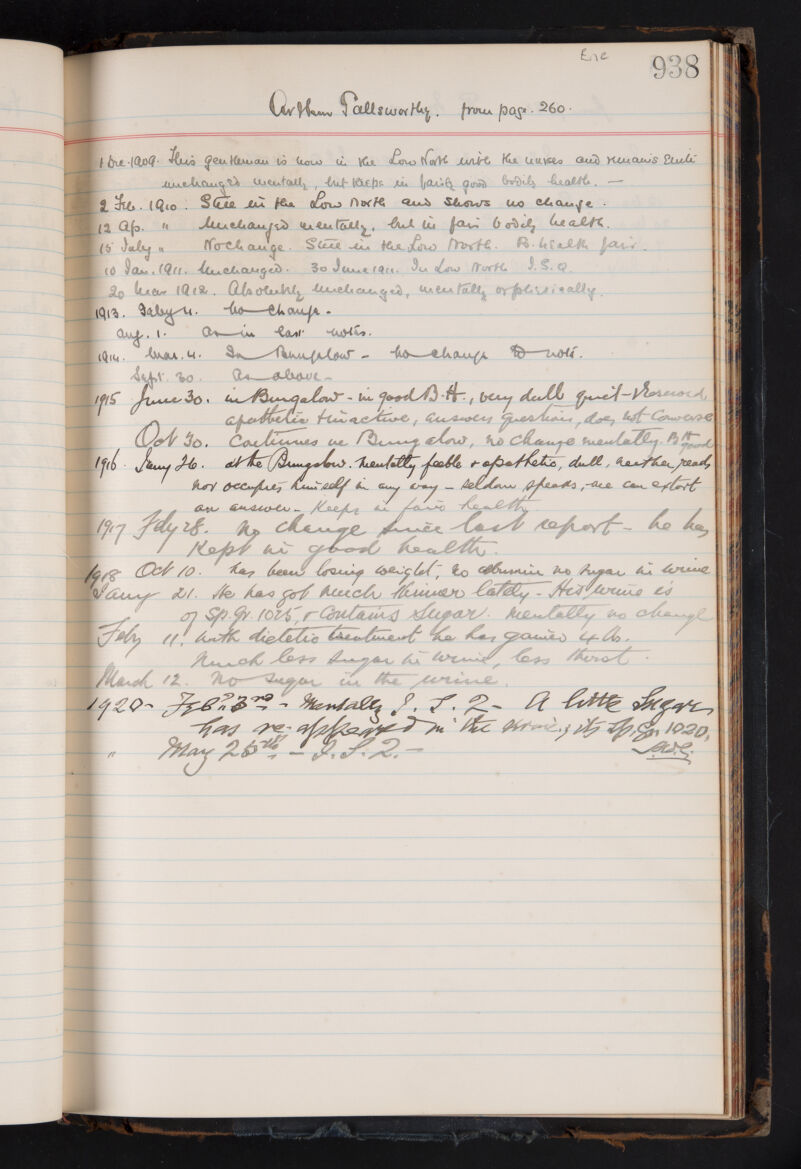 938
Arthur Pallsworthy. from page. 260.
1 Dec. 1909. This gentleman is now in the Low North with the nurses and remains quite
unchanged mentally, but keeps in fairly good bodily health. —
2 Feb. 1910. Still in the Low North and shows no change.
12 Ap. " Unchanged mentally, but in fair bodily health.
15 July " No change. Still in the Low North. B. health fair.
10 Jan. 1911. Unchanged. 30 June 1911. In Low North I.S.Q.
20 Mar 1912. Absolutely unchanged, mentally or physically.
1913. Feby 4. No change -
Aug. 1. As in last notes.
1914. Mar. 4. In Bungalow - no change to note.
Sept. 30. As above -
1915 June 30. in Bungalow - in good B.H., very dull quiet - reserved
apathetic & inactive, answers questions, does not converse
Oct 30. Continues in Bungalow, no change mentally. B.H good
1916. Jany 26. at the Bungalow. mentally feeble & apathetic, dull, neither reads
nor occupies himself in any way - seldom speaks, we can extort
an answer - Keeps in fair health
1917 Feby 28. No change since last report - he has
kept in good health.
1918 Oct 10. has been losing weight, no albumin no sugar in urine
Jany 21. He has got much thinner lately - His urine is
of Sp. Gr. 1025, & contains sugar. Mentally no change
Feby 11. With dietetic treatment he has gained 4 lb.
Much less sugar in urine, less thirst.
March 12. No sugar in the urine.
1920 - Feb 3rd - Mentally I. S. Q. - A little sugar
has re-appeared in the urine, its sp. gr. 1020,
" May 25th - I. S. Q. -